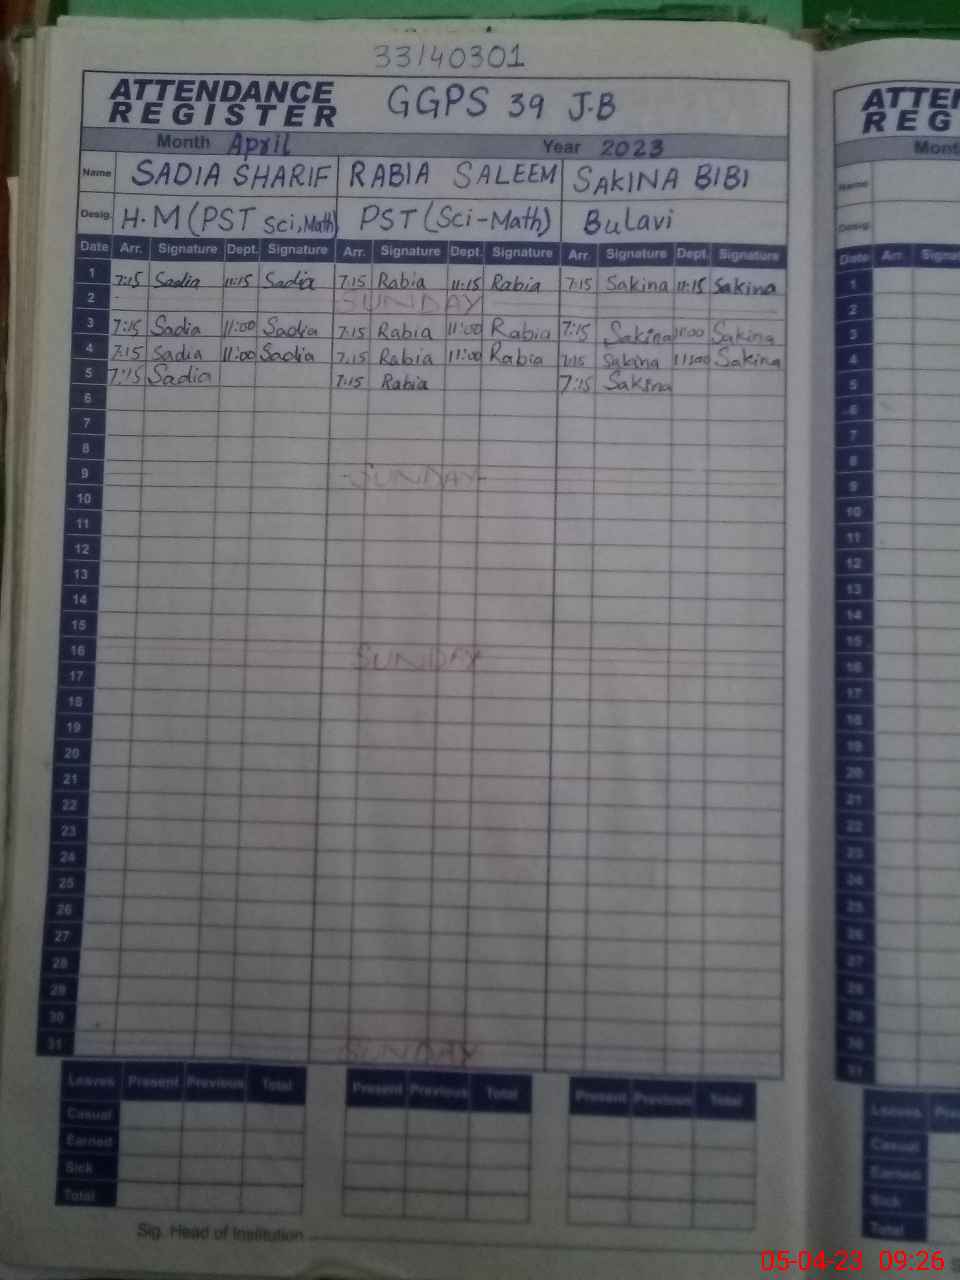 33140301
ATTENDANCE
REGISTER
GGPS 39 J.B
Month April Year 2023
Name SADIA SHARIF RABIA SALEEM SAKINA BIBI
Desig. H.M (PST Sci, Math) PST (Sci-Math) Bulavi
Date Arr. Signature Dept. Signature Arr. Signature Dept. Signature Arr. Signature Dept. Signature
1 7:15 Sadia 11:15 Sadia 7:15 Rabia 11:15 Rabia 7:15 Sakina 11:15 Sakina
2 SUNDAY
3 7:15 Sadia 11:00 Sadia 7:15 Rabia 11:00 Rabia 7:15 Sakina 11:00 Sakina
4 7:15 Sadia 11:00 Sadia 7:15 Rabia 11:00 Rabia 7:15 Sakina 11:00 Sakina
5 7:15 Sadia 7:15 Rabia 7:15 Sakina
6
7
8
9 SUNDAY
10
11
12
13
14
15
16 SUNDAY
17
18
19
20
21
22
23
24
25
26
27
28
29
30
31 SUNDAY
Leaves Present Previous Total Present Previous Total Present Previous Total
Casual
Earned
Sick
Total
Sig. Head of Institution
ATTEN
REG
Mont
Name
Desig.
Date Arr. Signat
1
2
3
4
5
6
7
8
9
10
11
12
13
14
15
16
17
18
19
20
21
22
23
24
25
26
27
28
29
30
31
Leaves Pre
Casual
Earned
Sick
Total
05-04-23 09:26